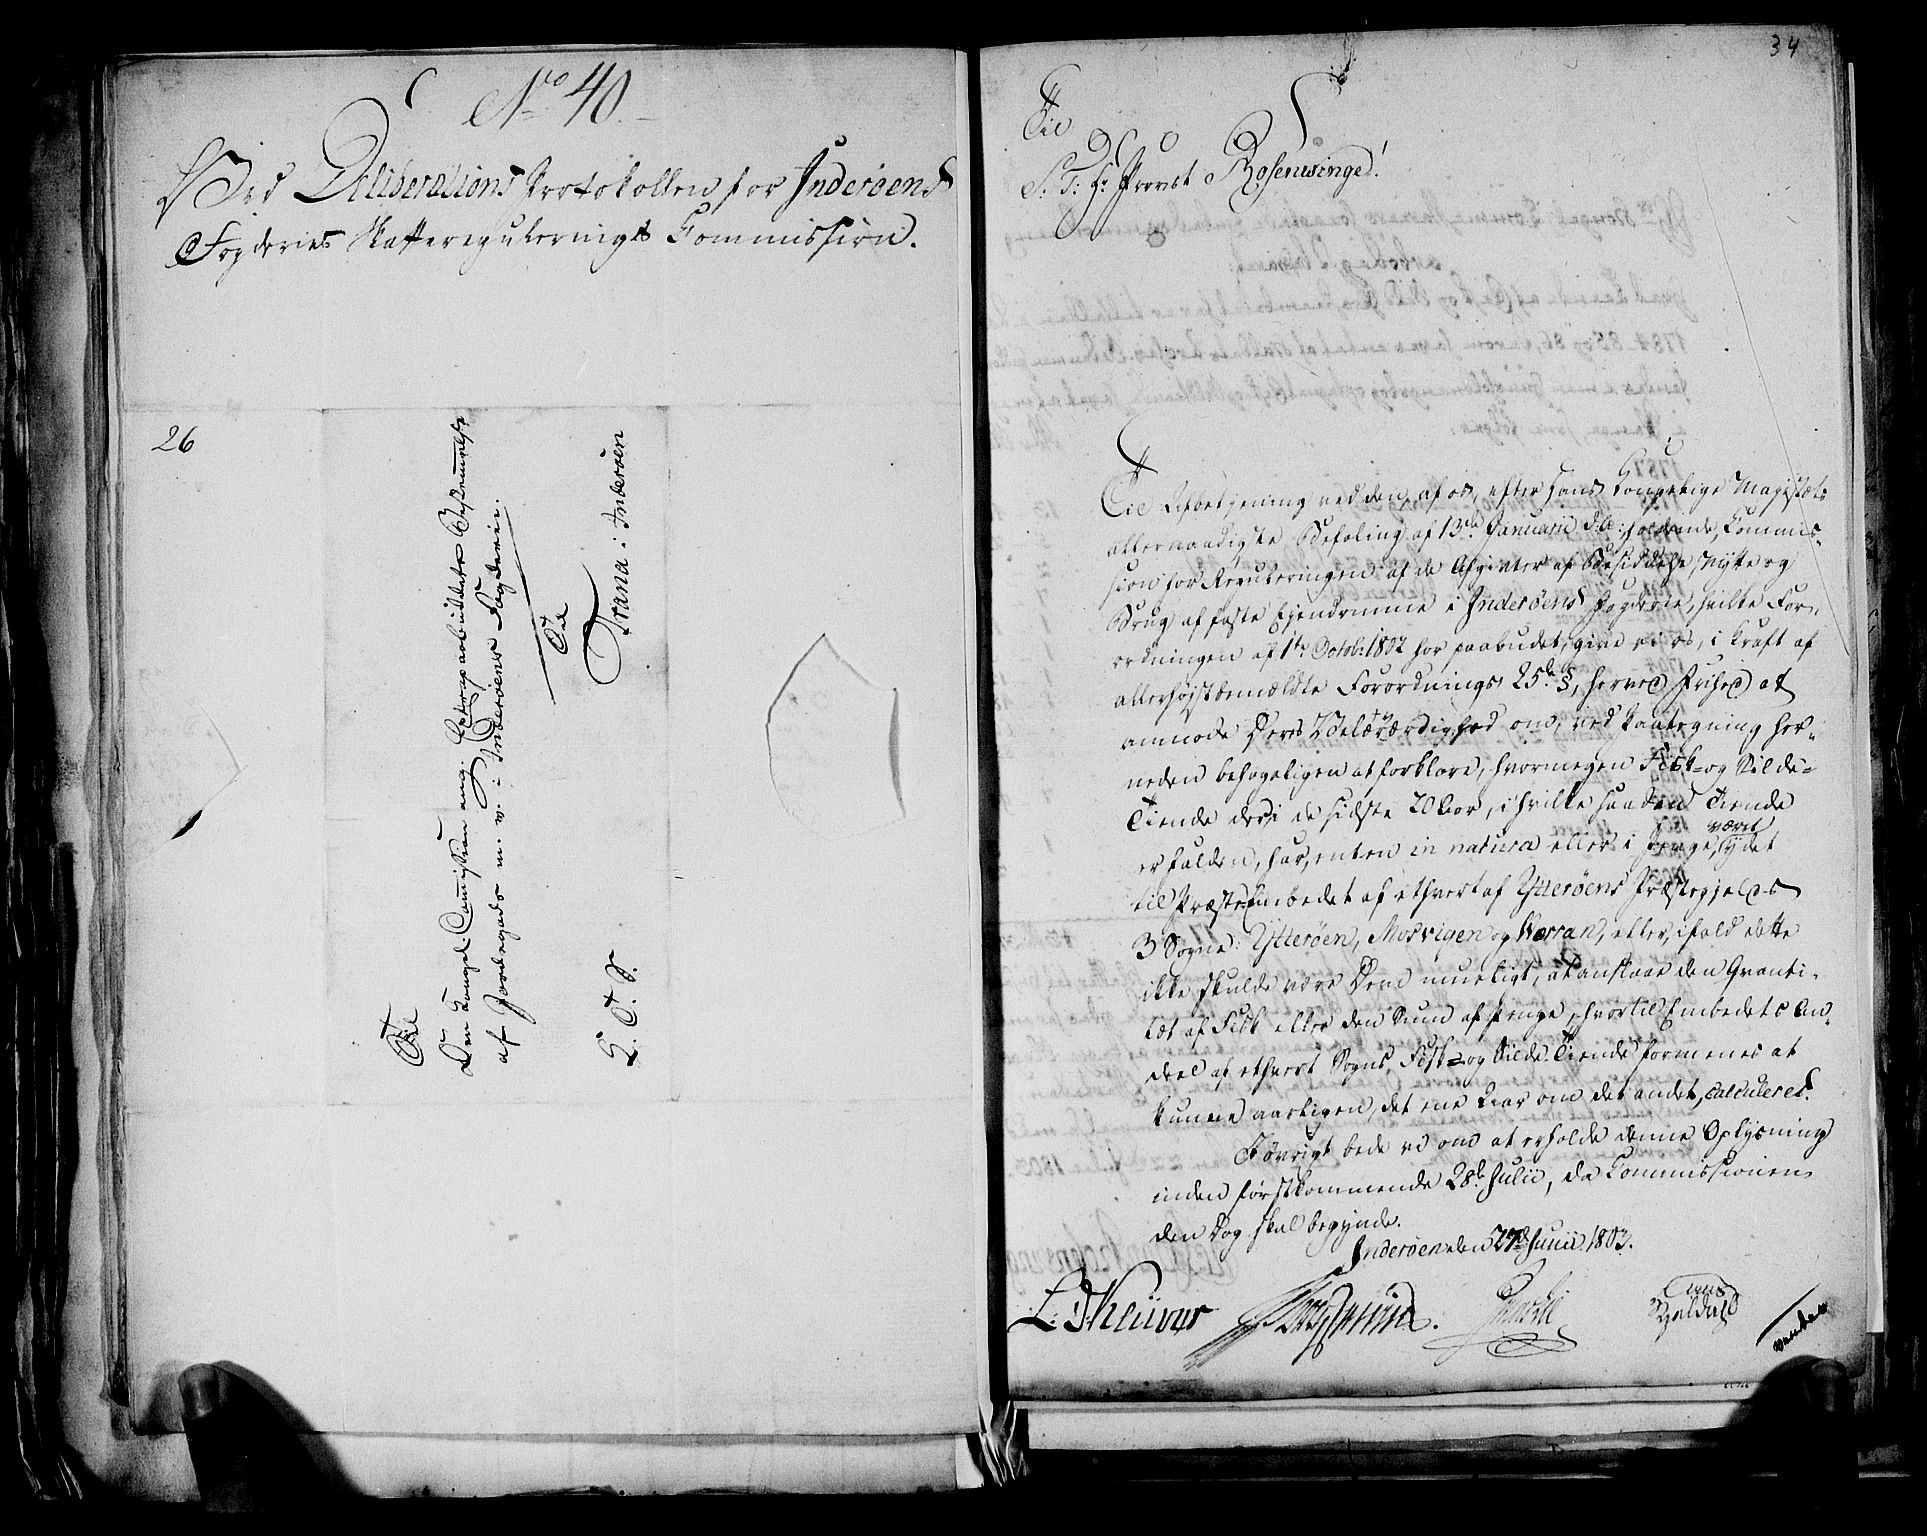 No 40.
Ved Deliberations Protokollen for Inderøens
Fogderies Matteregulerings Commission.
26
Til
Den Kongel: Commission ang. Extrapaabuddets Bestemmelse
af Jordegods m. v. i Inderøens Fogderie.
Til
Trana i Inderøen
L. T. S.
34
Til
S. T. Hr Provst Rosenvinge!
Til Afbetjening ved den, af os, efter Hans Kongelige Majestæts
allernaadigste Befaling af 13de Januarii d. A: holdende, Commis-
sion for Reguleringen af de Afgivter af Besiddelse, Nytte og
Brug af faste Ejendomme i Inderøens Fogderie, hvilke For-
ordningen af 1te Octob: 1802 har paabudet, give vi os, i Kraft af
allerhøjstbemældte Forordnings 25de §, herved Frihed at
anmode Deres Velærværdighed om, ved Paategning her-
neden behageligen at forklare, hvormegen Fisk- og Silde-
Tiende der i de sidste 20 Aar, i hvilke saadan Tiende
er falden, har, enten in natura eller i Penge, været ydet
til Præste Embedet af ethvert af Ytterøens Præstegjelds
3 Sogne: Ytterøen, Mosvigen og Værran, eller, ifald dette
ikke skulde være Dem mueligt, at anslaae den Qvanti-
tæt af Fisk eller den Sum af Penge, hvortil Embedets An-
deel af ethvert Sogns Fisk- og Silde Tiende formenes at
kunne aarligen, det ene Aar om det andet, calculeres.
Iøvrigt bede vi om at erholde denne Oplysning
inden førstkommende 28de Julii, da Commissionen
den Dag skal begynde.
Inderøen den 27de Junii 1803.
vendes